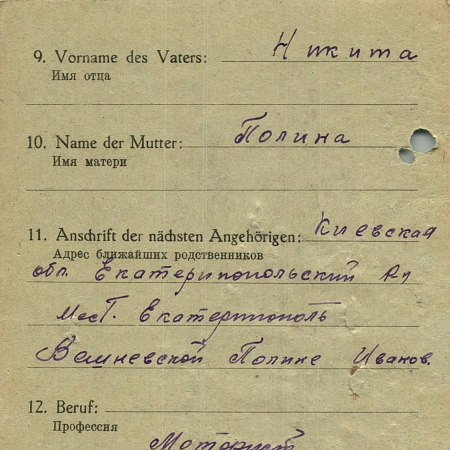 9. Vorname des Vaters: Никита
Имя отца
10. Name der Mutter: Полина
Имя матери
11. Anschrift der nächsten Angehörigen: Киевская
Адрес ближайших родственников
обл. Екатеринопольский
Мест. Екатеринополь
Вешневской Полине Иванов.
12. Beruf:
Профессия
Моторист